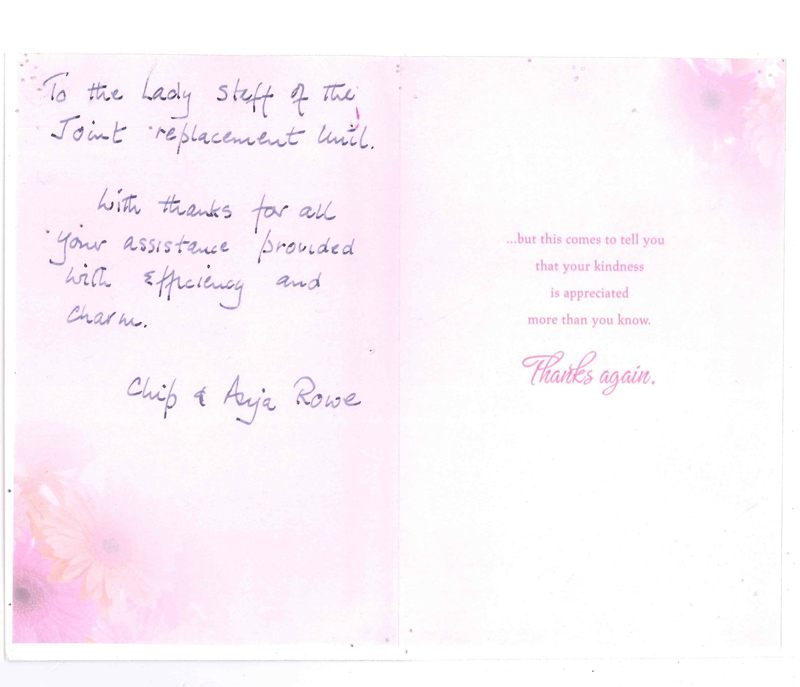 To the Lady Staff of the
Joint replacement Unit.
With thanks for all
your assistance provided
with Efficiency and
charm.
Chip & Anja Rowe
...but this comes to tell you
that your kindness
is appreciated
more than you know.
Thanks again.